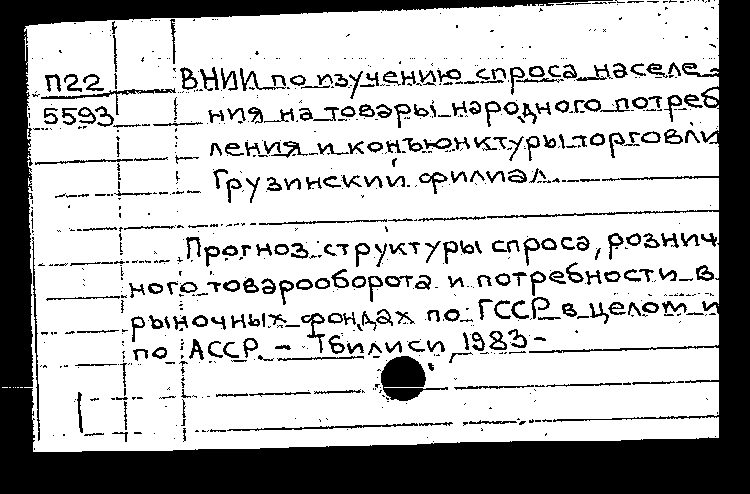 П22 ВНИИ по изучению спроса населе-
5593 ния на товары народного потреб
ления и конъюнктуры торговли
Грузинский филиал.
Прогноз структуры спроса, рознич
ного товарооборота и потребности в
рыночных фондах по ГССР в целом и
по АССР. - Тбилиси, 1983-